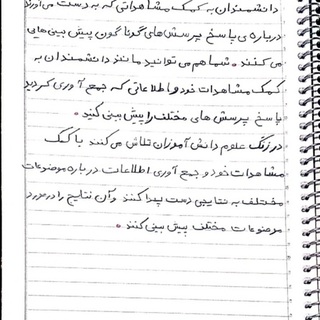 دانشمندان به کمک مشاهداتی که به دست می آورند
درباره ی پاسخ پرسش های گوناگون پیش بینی هایی
می کنند. شما هم می توانید مانند دانشمندان به
کمک مشاهدات خود و اطلاعاتی که جمع آوری کردید
پاسخ پرسش های مختلف را پیش بینی کنید.
در زنگ علوم دانش آموزان تلاش می کنند با کمک
مشاهدات خود و جمع آوری اطلاعات درباره موضوعات
مختلف به نتایجی دست پیدا کنند و آن نتایج را در مورد
موضوعات مختلف پیش بینی کنند.